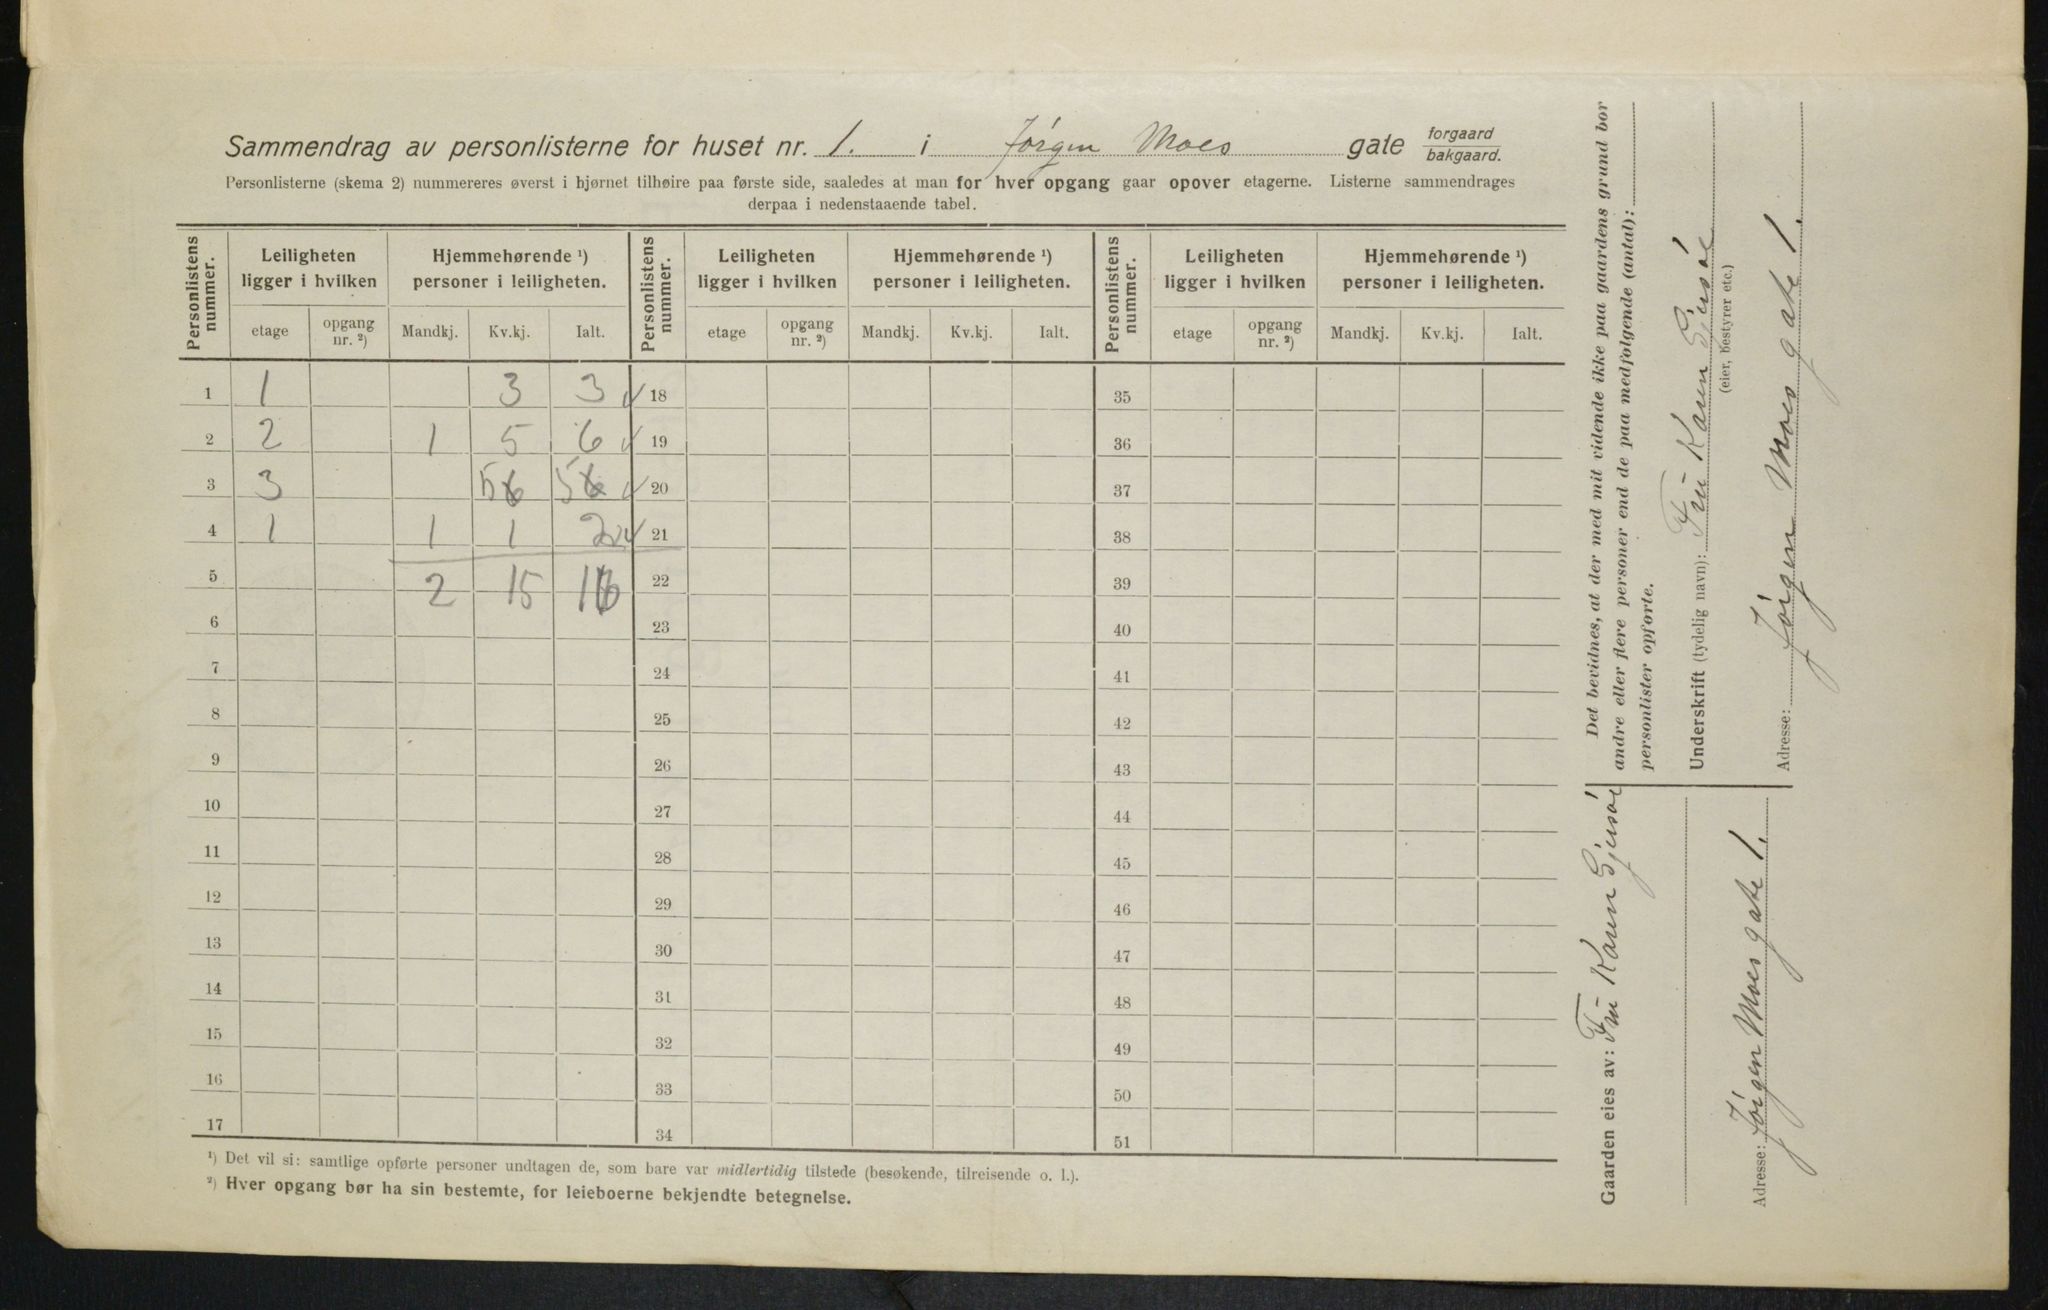 Sammendrag av personlisterne for huset nr. 1. i Jørgen Moes gate forgaard / bakgaard.
Personlisterne (skema 2) nummereres øverst i hjørnet tilhøire paa første side, saaledes at man for hver opgang gaar opover etagerne. Listerne sammendrages
derpaa i nedenstaaende tabel.
Personlistens nummer. | Leiligheten ligger i hvilken | Hjemmehørende ¹) personer i leiligheten. | Personlistens nummer. | Leiligheten ligger i hvilken | Hjemmehørende ¹) personer i leiligheten. | Personlistens nummer. | Leiligheten ligger i hvilken | Hjemmehørende ¹) personer i leiligheten.
etage | opgang nr. ²) | Mandkj. | Kv.kj. | Ialt. | etage | opgang nr. ²) | Mandkj. | Kv.kj. | Ialt. | etage | opgang nr. ²) | Mandkj. | Kv.kj. | Ialt.
1 | 1 | | | 3 | 3 √ | 18 | 35
2 | 2 | | 1 | 5 | 6 √ | 19 | 36
3 | 3 | | | 5 6 | 5 6 √ | 20 | 37
4 | 1 | | 1 | 1 | 2 √ | 21 | 38
5 | | | 2 | 15 | 16 | 22 | 39
6 | 23 | 40
7 | 24 | 41
8 | 25 | 42
9 | 26 | 43
10 | 27 | 44
11 | 28 | 45
12 | 29 | 46
13 | 30 | 47
14 | 31 | 48
15 | 32 | 49
16 | 33 | 50
17 | 34 | 51
¹) Det vil si: samtlige opførte personer undtagen de, som bare var midlertidig tilstede (besøkende, tilreisende o. l.).
²) Hver opgang bør ha sin bestemte, for leieboerne bekjendte betegnelse.
Det bevidnes, at der med mit vidende ikke paa gaardens grund bor
andre eller flere personer end de paa medfølgende (antal):
personlister opførte.
Underskrift (tydelig navn): Frü Karen
(eier, bestyrer etc.)
Adresse: Jørgen Moes gate 1.
Gaarden eies av: Frü Karen
Adresse: Jørgen Moes gate 1.